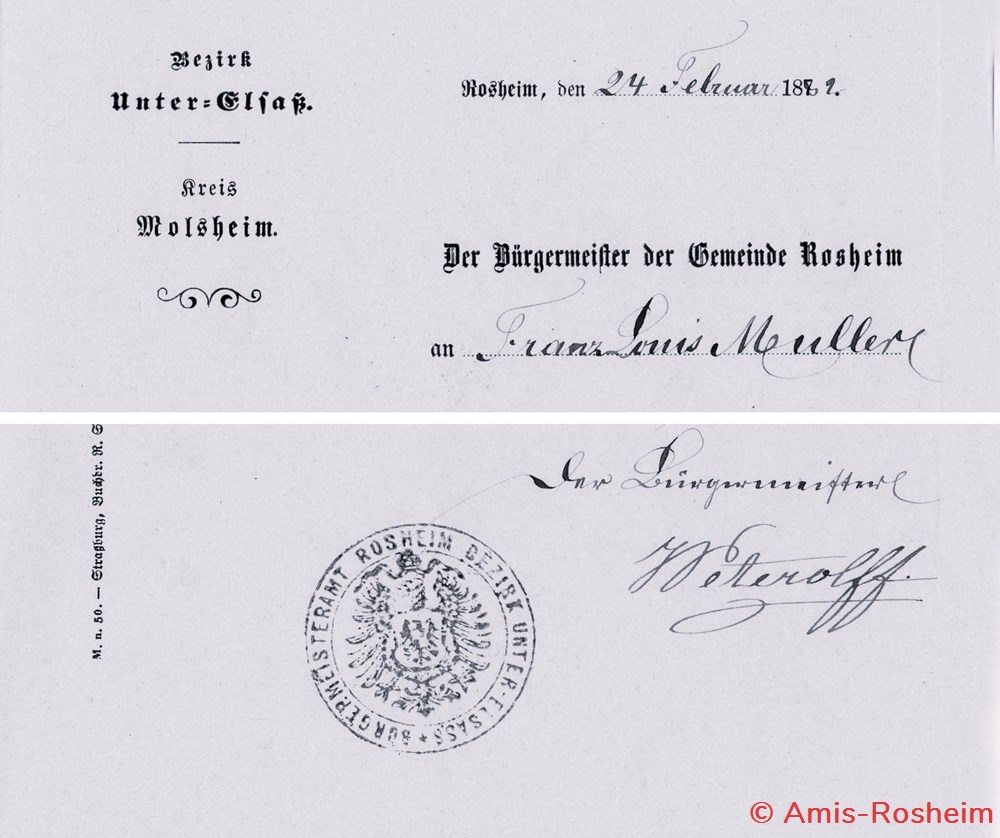 Bezirk
Unter-Elsaß.
Kreis
Molsheim.
Rosheim, den 24 Februar
Der Bürgermeister der Gemeinde Rosheim
an Franz Louis Muller
M. n. 50. — Straßburg, Buchdr. R. S
Der Bürgermeister
Weterolff.
BÜRGERMEISTERAMT ROSHEIM BEZIRK UNTER-ELSASS *
© Amis-Rosheim